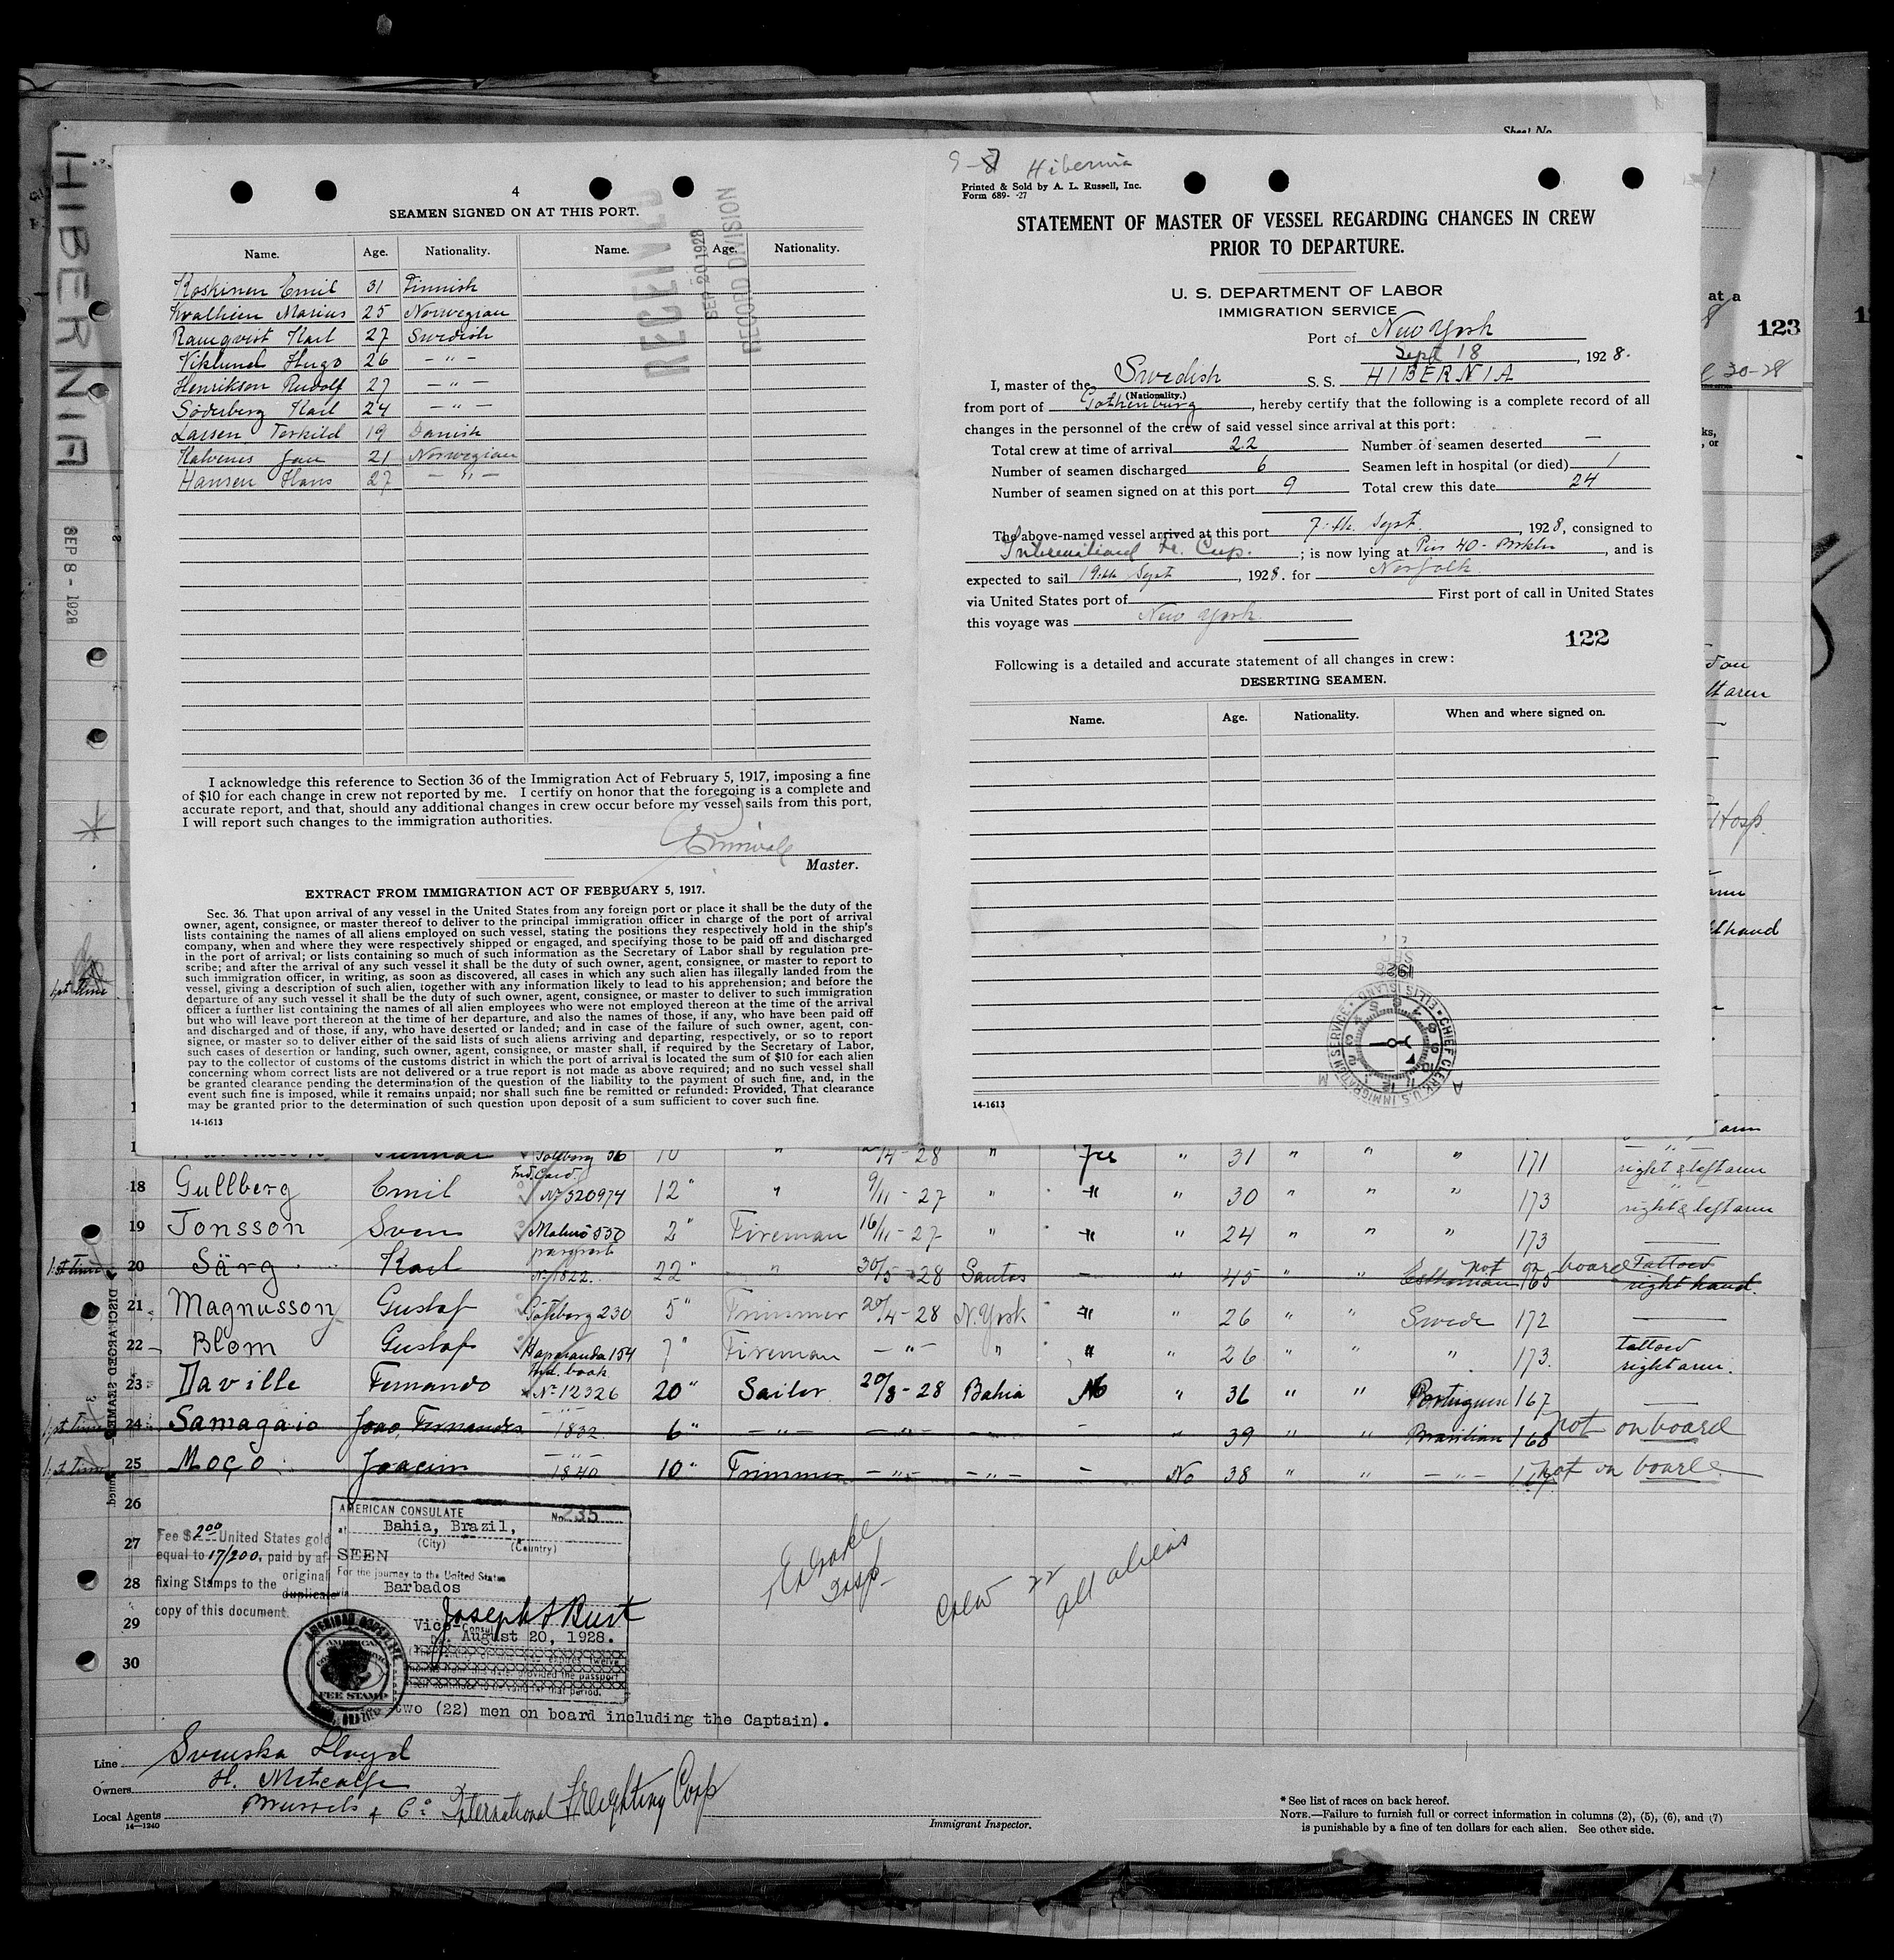 HIBERNIA
SEP 8 - 1928
Sheet No.
4
SEAMEN SIGNED ON AT THIS PORT.
RECEIVED
SEP 20 1928
RECORD DIVISION
Name. Age. Nationality. Name. Age. Nationality.
Koskinen Emil 31 Finnish
Kvalhein Marius 25 Norwegian
Ramqvist Karl 27 Swedish
Viklund Hugo 26 — " —
Henrikson Rudolf 27 — " —
Söderberg Karl 24 — " —
Larsen Terkild 19 Danish
Kalvenes Jan 21 Norwegian
Hansen Hans 27 — " —
I acknowledge this reference to Section 36 of the Immigration Act of February 5, 1917, imposing a fine
of $10 for each change in crew not reported by me. I certify on honor that the foregoing is a complete and
accurate report, and that, should any additional changes in crew occur before my vessel sails from this port,
I will report such changes to the immigration authorities.
Master.
EXTRACT FROM IMMIGRATION ACT OF FEBRUARY 5, 1917.
Sec. 36. That upon arrival of any vessel in the United States from any foreign port or place it shall be the duty of the
owner, agent, consignee, or master thereof to deliver to the principal immigration officer in charge of the port of arrival
lists containing the names of all aliens employed on such vessel, stating the positions they respectively hold in the ship's
company, when and where they were respectively shipped or engaged, and specifying those to be paid off and discharged
in the port of arrival; or lists containing so much of such information as the Secretary of Labor shall by regulation pre-
scribe; and after the arrival of any such vessel it shall be the duty of such owner, agent, consignee, or master to report to
such immigration officer, in writing, as soon as discovered, all cases in which any such alien has illegally landed from the
vessel, giving a description of such alien, together with any information likely to lead to his apprehension; and before the
departure of any such vessel it shall be the duty of such owner, agent, consignee, or master to deliver to such immigration
officer a further list containing the names of all alien employees who were not employed thereon at the time of the arrival
but who will leave port thereon at the time of her departure, and also the names of those, if any, who have been paid off
and discharged and of those, if any, who have deserted or landed; and in case of the failure of such owner, agent, con-
signee, or master so to deliver either of the said lists of such aliens arriving and departing, respectively, or so to report
such cases of desertion or landing, such owner, agent, consignee, or master shall, if required by the Secretary of Labor,
pay to the collector of customs of the customs district in which the port of arrival is located the sum of $10 for each alien
concerning whom correct lists are not delivered or a true report is not made as above required; and no such vessel shall
be granted clearance pending the determination of the question of the liability to the payment of such fine, and, in the
event such fine is imposed, while it remains unpaid; nor shall such fine be remitted or refunded: Provided, That clearance
may be granted prior to the determination of such question upon deposit of a sum sufficient to cover such fine.
14-1613
Hibernia
Printed & Sold by A. L. Russell, Inc.
Form 689- -27
STATEMENT OF MASTER OF VESSEL REGARDING CHANGES IN CREW
PRIOR TO DEPARTURE.
U. S. DEPARTMENT OF LABOR
IMMIGRATION SERVICE
Port of New York
Sept 18, 1928.
I, master of the Swedish S. S. HIBERNIA
(Nationality.)
from port of Gothenburg, hereby certify that the following is a complete record of all
changes in the personnel of the crew of said vessel since arrival at this port:
Total crew at time of arrival 22 Number of seamen deserted —
Number of seamen discharged 6 Seamen left in hospital (or died) 1
Number of seamen signed on at this port 9 Total crew this date 24
The above-named vessel arrived at this port 7-th Sept., 1928, consigned to
International Fr. Corp.; is now lying at Pier 40 - Brkln, and is
expected to sail 19th Sept, 1928. for Norfolk
via United States port of First port of call in United States
this voyage was New York
122
Following is a detailed and accurate statement of all changes in crew:
DESERTING SEAMEN.
Name. Age. Nationality. When and where signed on.
1928
CHIEF CLERK, U.S. IMMIGRATION SERVICE • ELLIS ISLAND •
14-1613
at a
123
30-28
left arm
Hosp.
arm
hand
arm
Göteborg 36 10 " 14 - 28 " Yes " 31 " " " 171 right & left arm
18 Gullberg Emil Ind. Card. No 520974 12" " 9/11 - 27 " " " 30 " " " 173 right & left arm
19 Jonsson Sven Malmö 550 2" Fireman 16/11 - 27 " " " 24 " " " 173 —
1st time 20 Särg Karl passport No 1822. 22" " 30/5 - 28 Santos — " 45 " " Esthonian 165 not on board Tattoed right hand.
21 Magnusson Gustaf Göteborg 230 5" Trimmer 20/4 - 28 N. York " " 26 " " Swede 172 —
22 Blom Gustaf Haparanda 154 7" Fireman — " — " " " 26 " " " 173. tattoed right arm.
23 Daville Fernando Ind. book No 12326 20" Sailor 20/8 - 28 Bahia No " 36 " " Portuguese 167 —
1st time 24 Samagaio Joao, Fernandes — " — 1832 6" — " — — " — — " — — " 39 " " Brasilian 168 not on board
1st time 25 Moço Joacim — " — 1840 10" Trimmer — " — — " — — No 38 " " — " — not on board
DISCHARGED SEAMEN
26
27
28
29
30
Fee $2.00 United States gold
equal to 17/200. paid by af-
fixing Stamps to the original
duplicate
copy of this document.
AMERICAN CONSULATE No. 235
at Bahia, Brazil,
(City) (Country)
SEEN
For the journey to the United States
via Barbados
Joseph A Burt
Vice Consul
August 20, 1928.
FEE STAMP
two (22) men on board including the Captain).
Crew 22
all aliens
Line Svenska Lloyd
Owners H. Metcalfe
Local Agents Brussels & Co. International Freighting Corp
14—1240
Immigrant Inspector.
* See list of races on back hereof.
NOTE.—Failure to furnish full or correct information in columns (2), (5), (6), and (7)
is punishable by a fine of ten dollars for each alien. See other side.